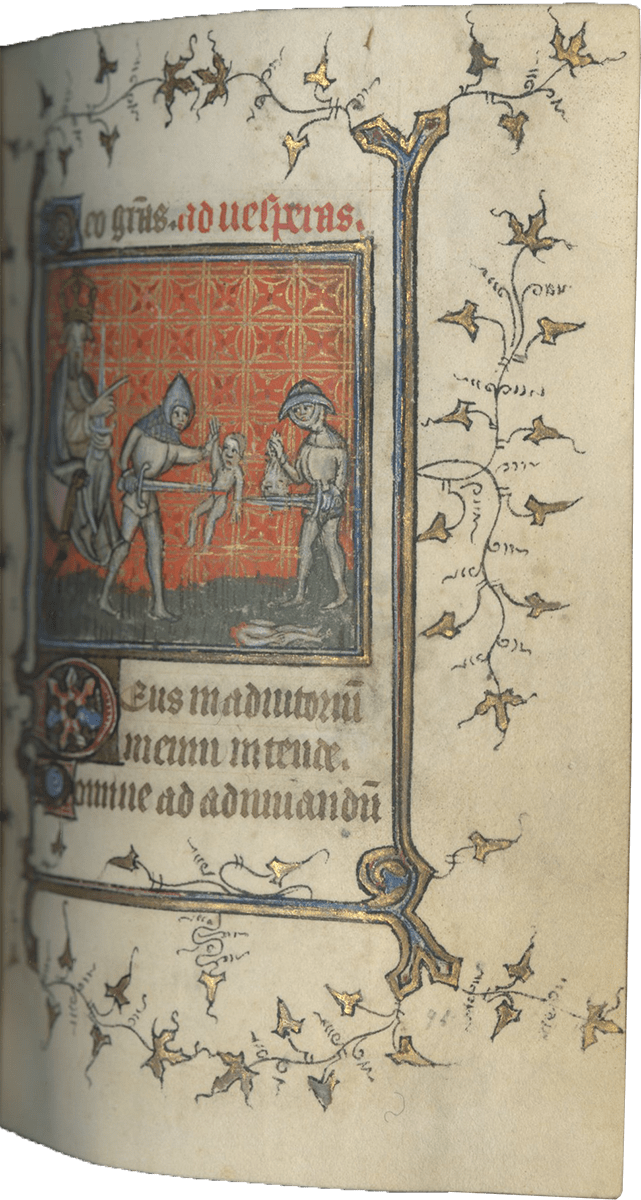 Deo gr̅as. ad uesperas.
Deus in adiutoriū
meum intende.
Domine ad adiuuandū